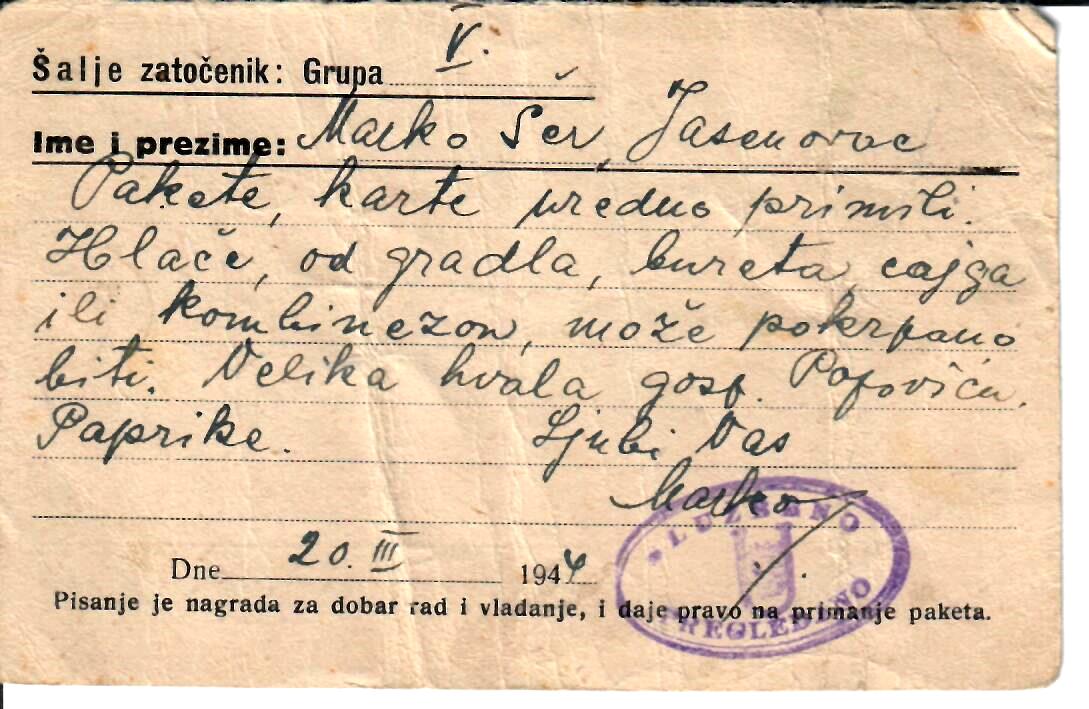 Šalje zatočenik: Grupa V.
Ime i prezime: Marko Šer, Jasenovac
Pakete, karte uredno primili.
Hlače, od gradla, bureta, cajga
ili kombinezon, može pokrpano
biti. Velika hvala gosp. Popoviću.
Paprike. Ljubi Vas
Marko
SLUŽBENO
Dne 20. III 1944
Pisanje je nagrada za dobar rad i vladanje, i daje pravo na primanje paketa.
PREGLEDANO